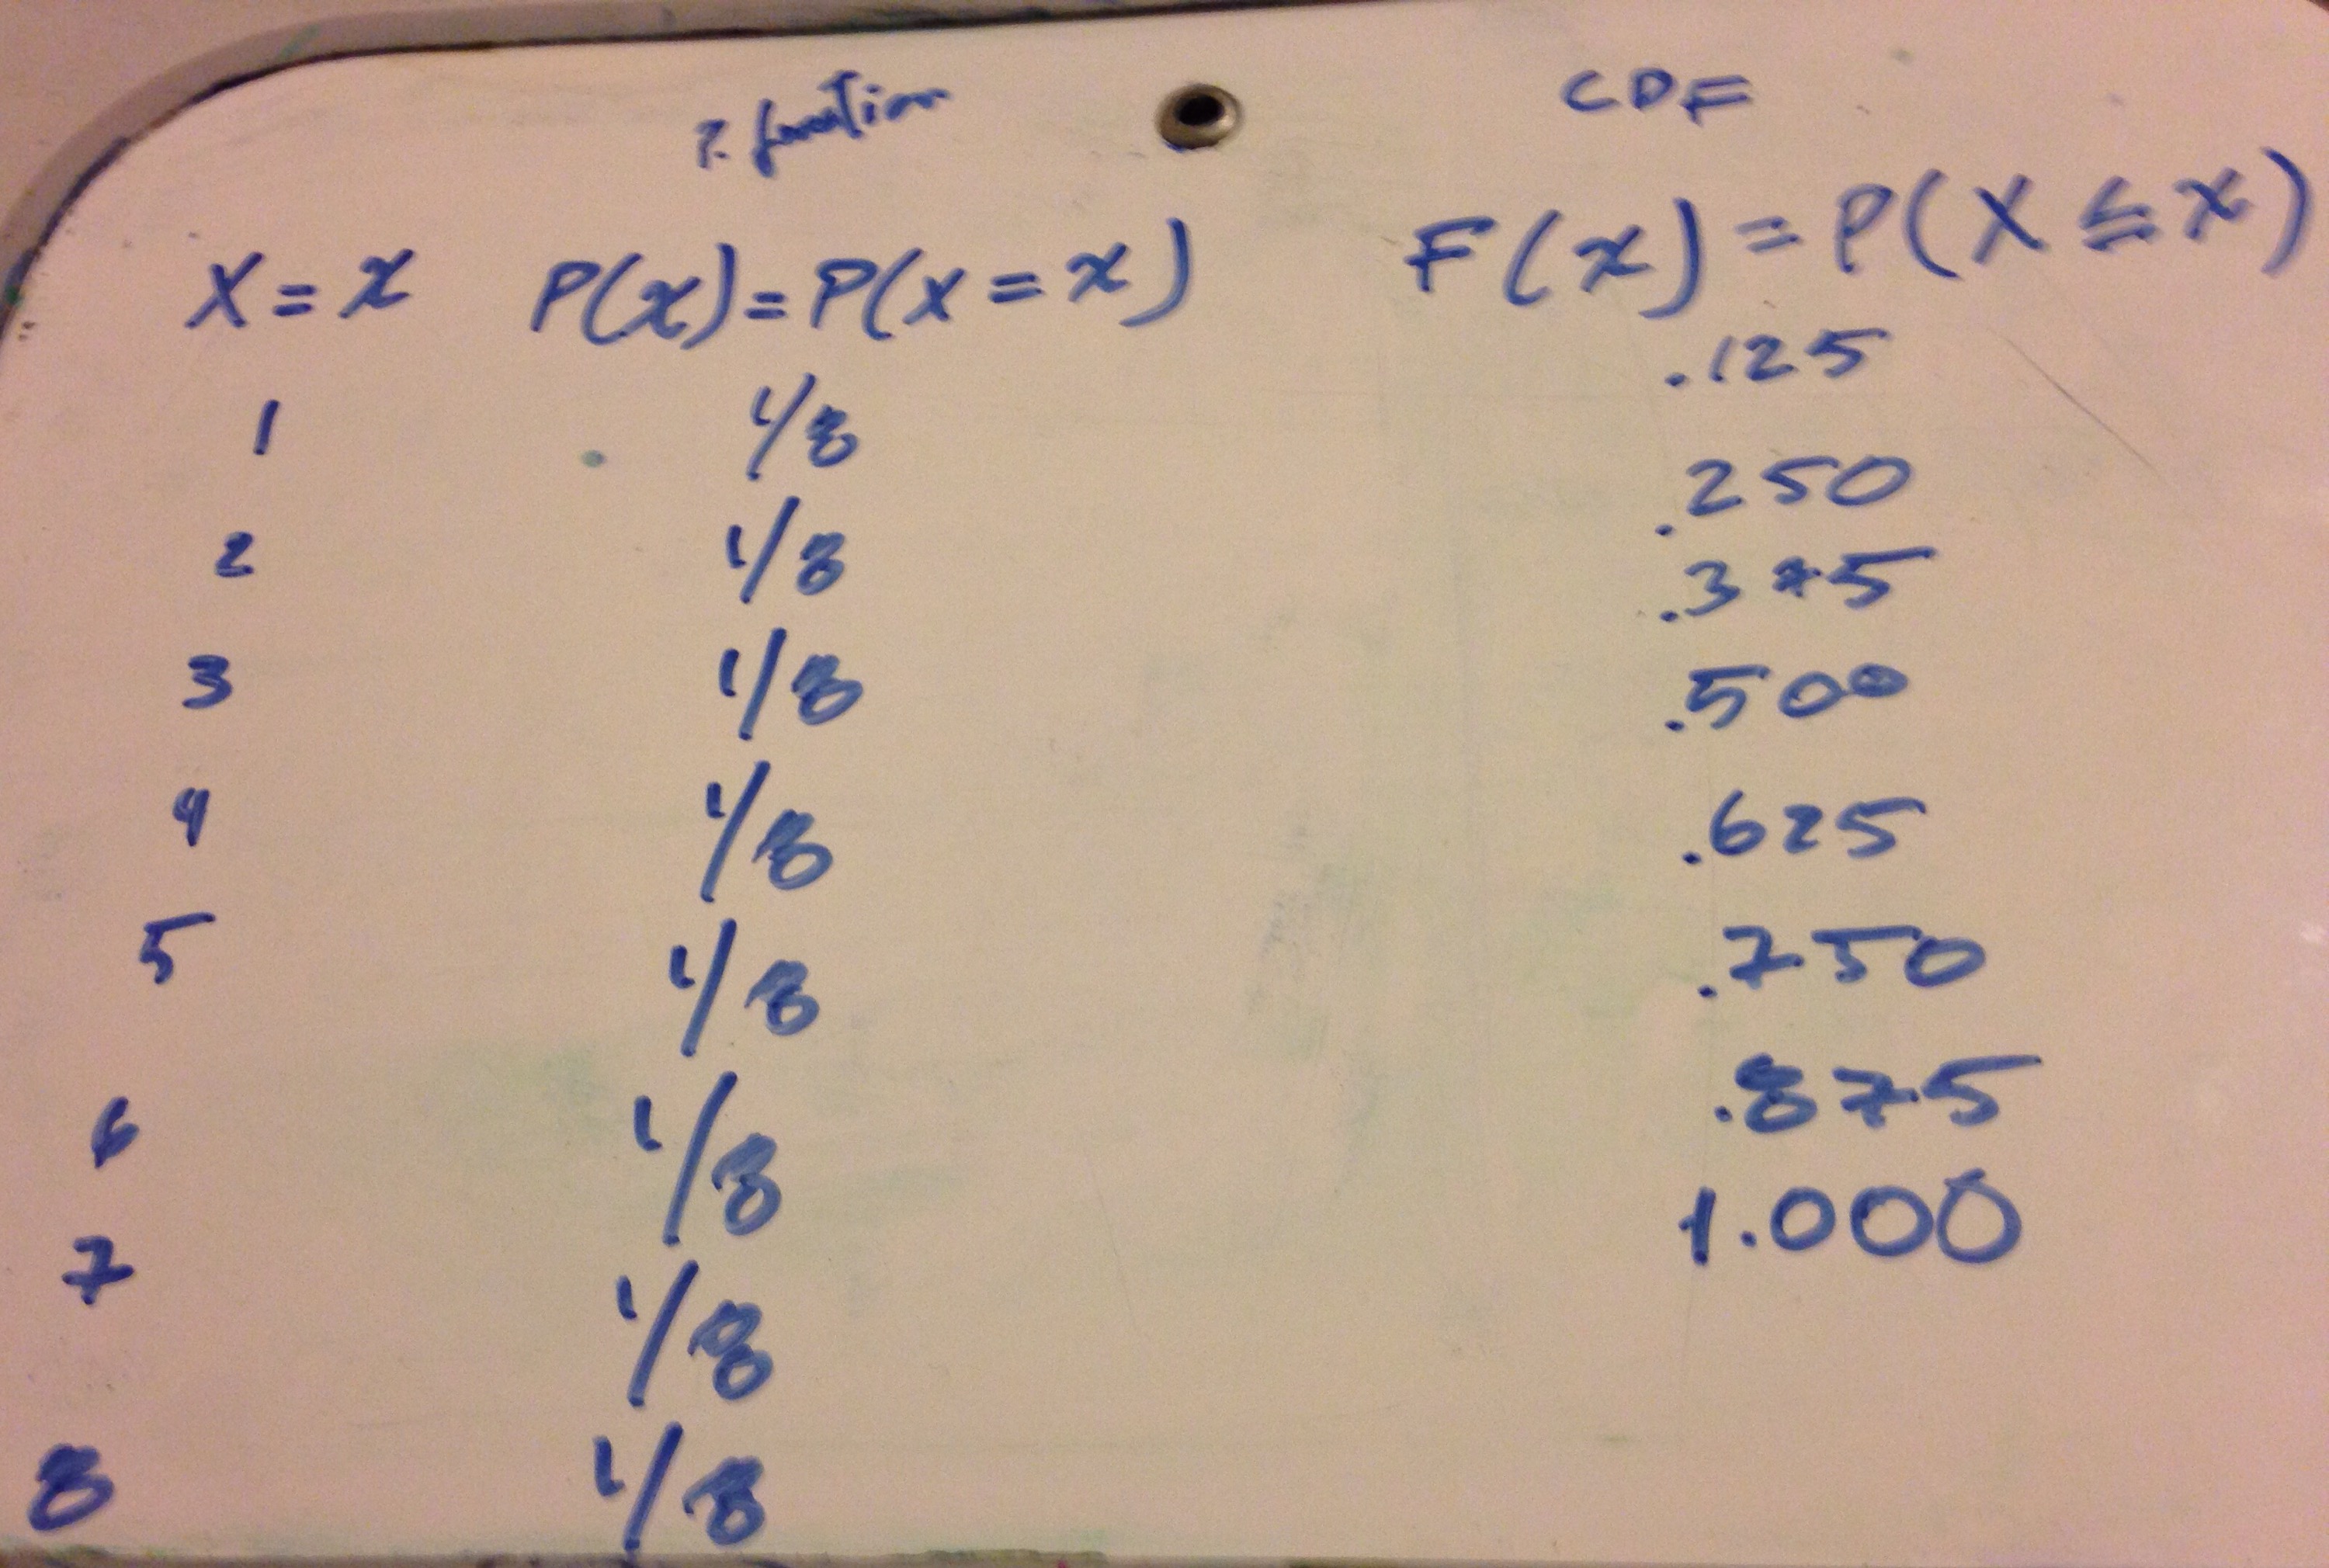 P. function CDF
X = x P(x) = P(X = x) F(x) = P(X ≤ x)
1 1/8 .125
2 1/8 .250
3 1/8 .375
4 1/8 .500
5 1/8 .625
6 1/8 .750
7 1/8 .875
8 1/8 1.000